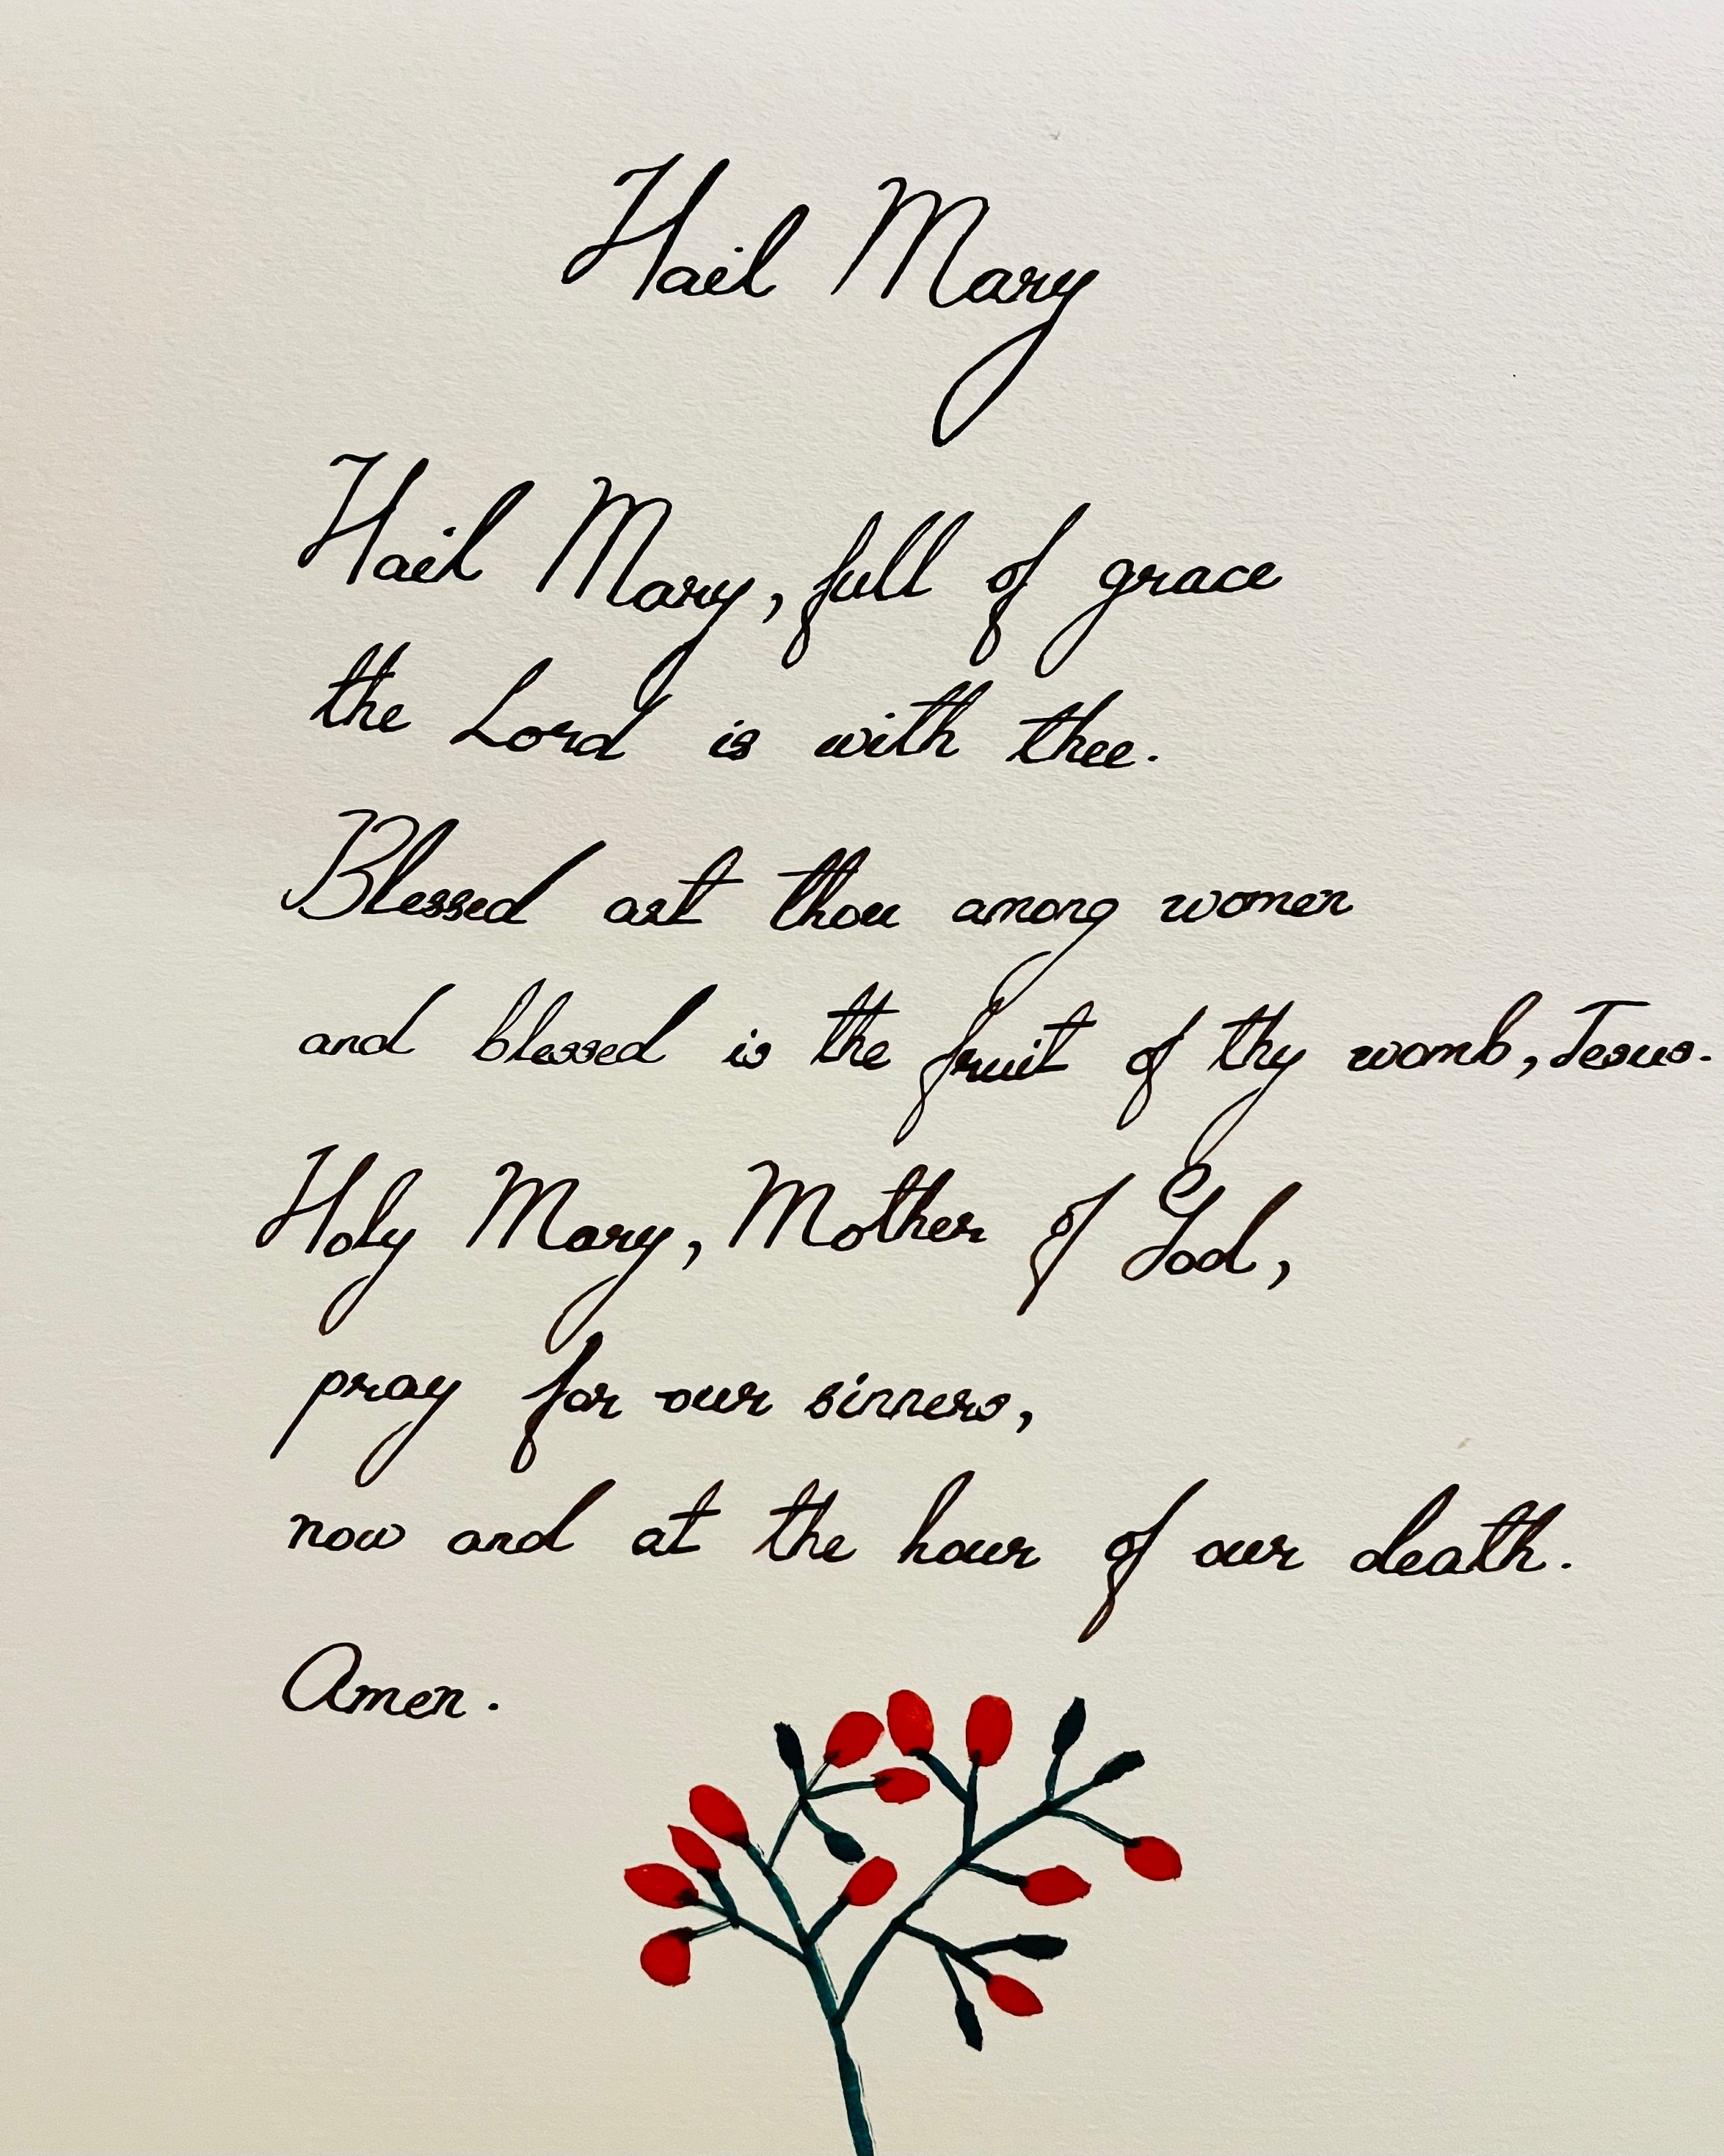 Hail Mary
Hail Mary, full of grace
the Lord is with thee.
Blessed art thou among women
and blessed is the fruit of thy womb, Jesus.
Holy Mary, Mother of God,
pray for our sinners,
now and at the hour of our death.
Amen.